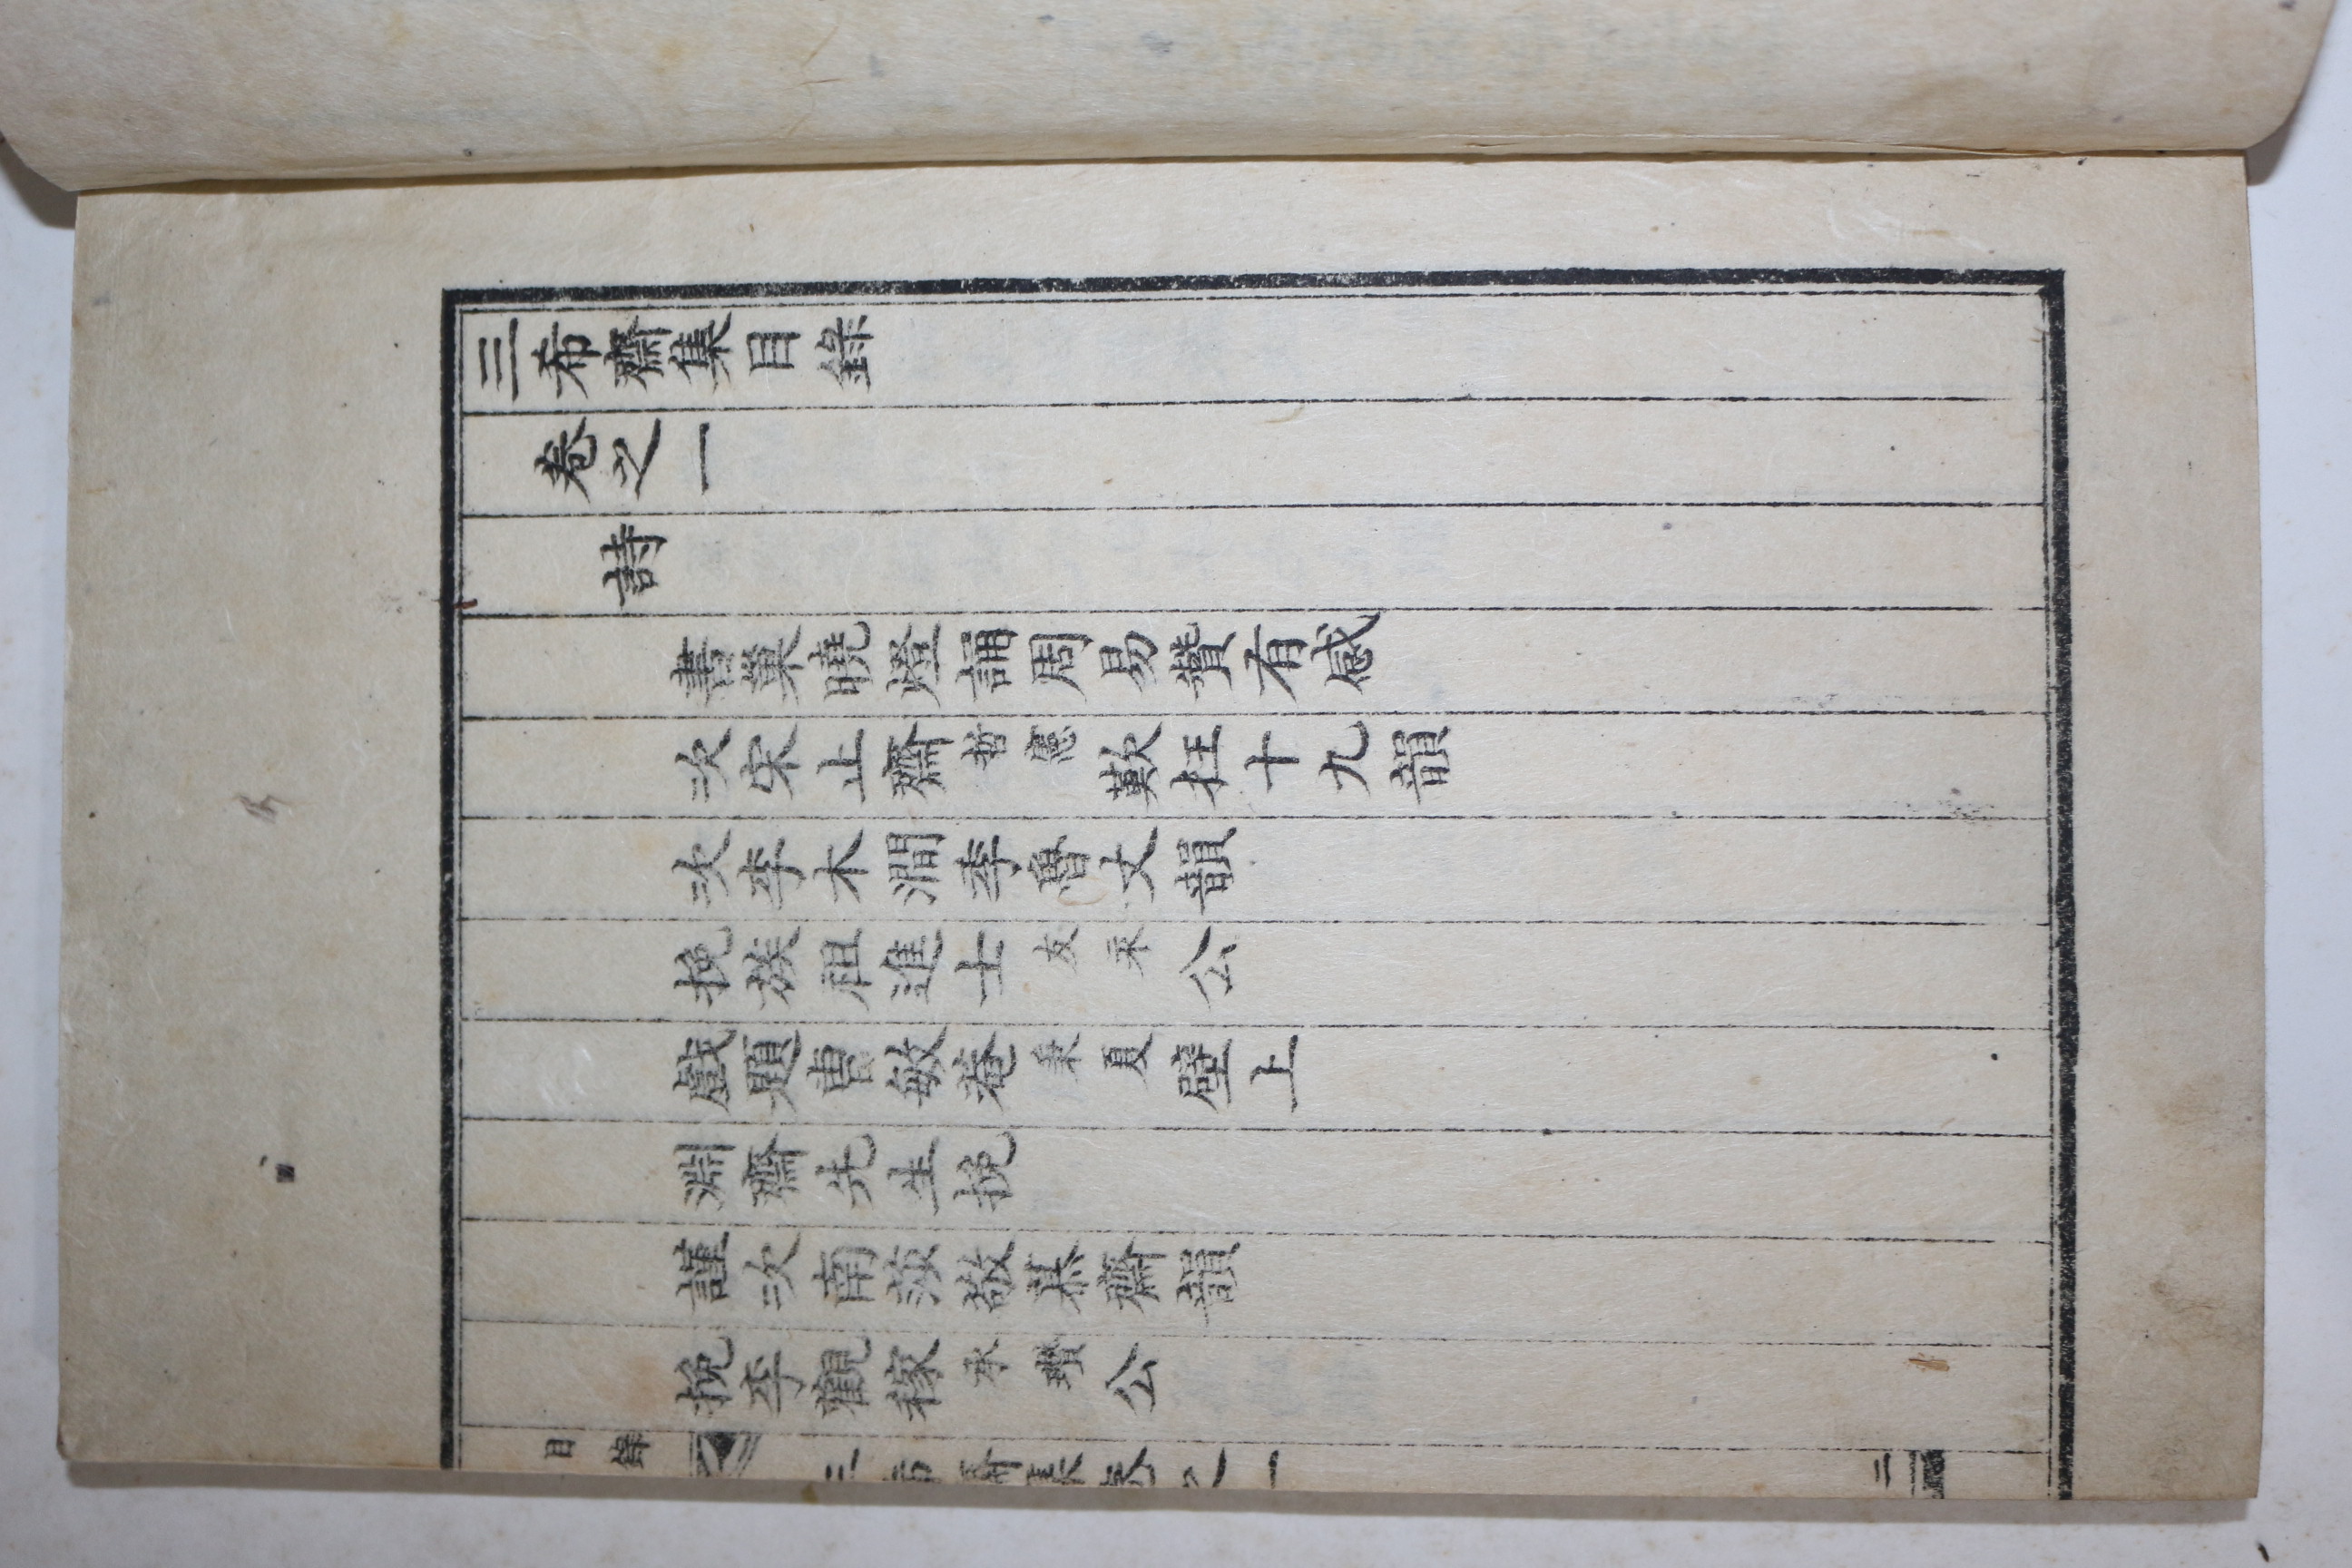 三希齋集目錄
卷之一
詩
書巢曉燈誦周易贊有感
次宋止齋哲憲歎狂十九韻
次李木澗季魯丈韻
挽族祖進士友永公
戲題曺敏菴秉夏壁上
淵齋先生挽
謹次南莎敬慕齋韻
挽李觀稼承瓚公
目錄
三希齋集卷之一
二